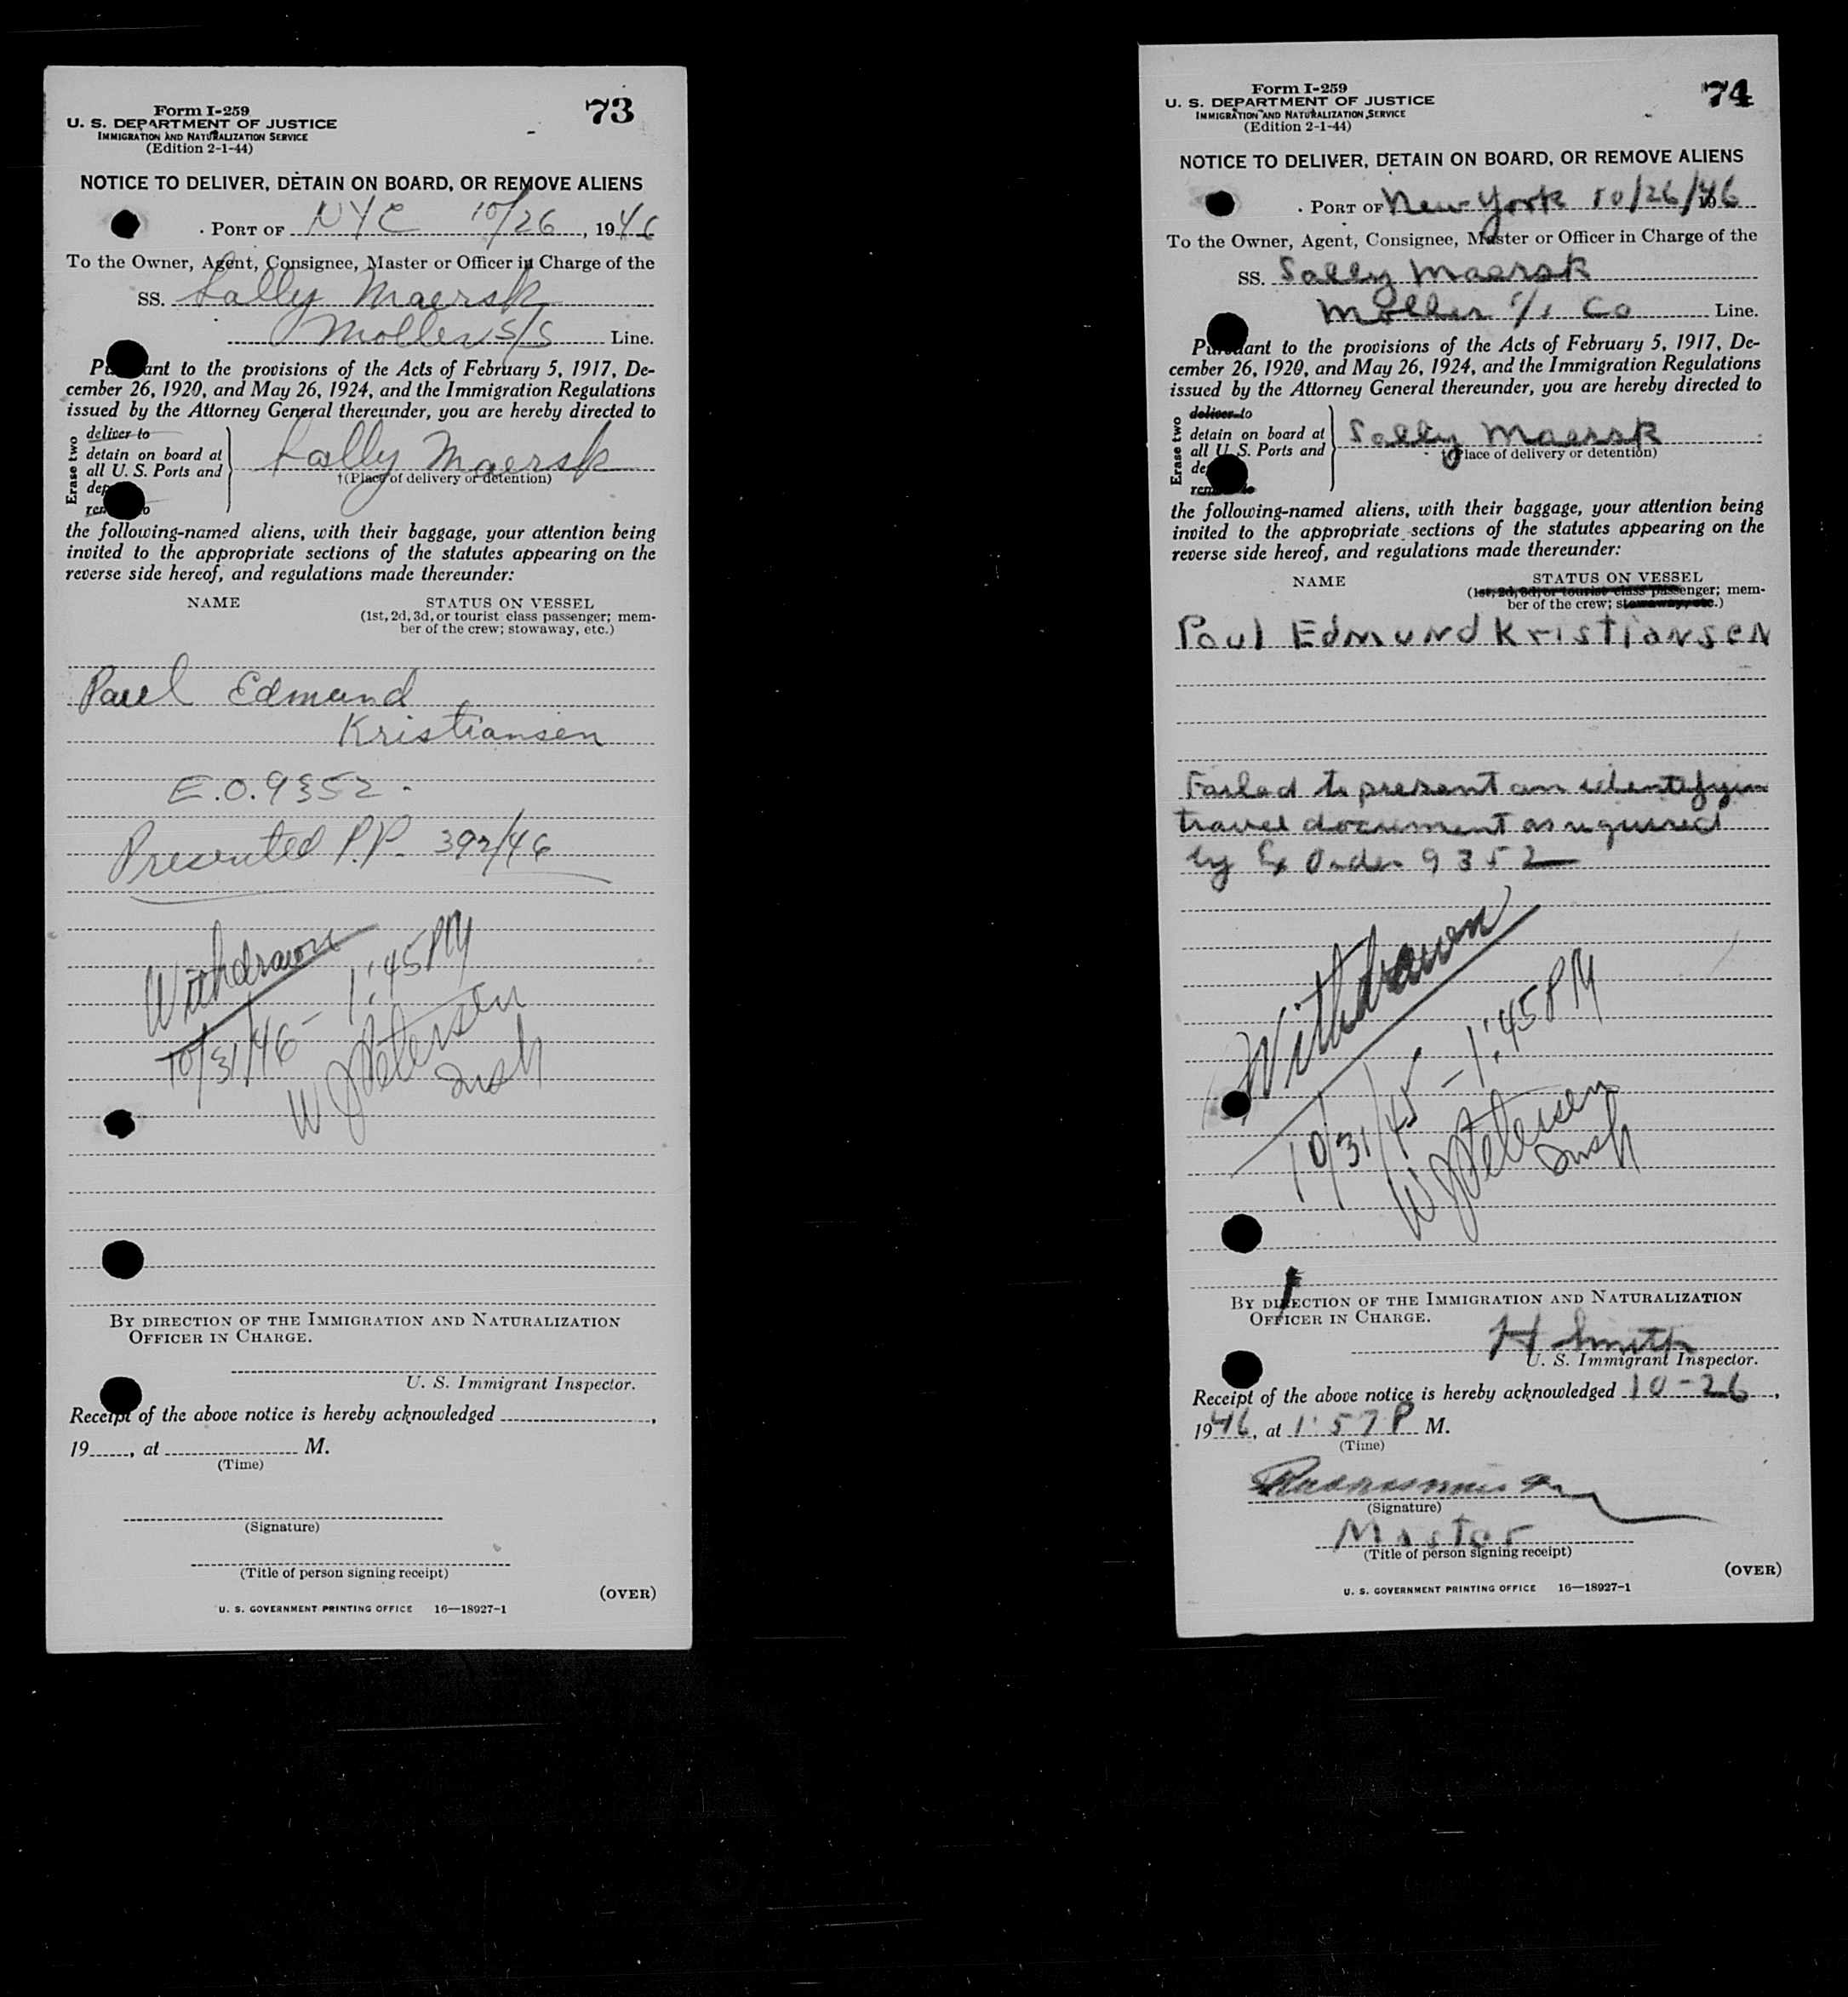 Form I-259
73
U. S. DEPARTMENT OF JUSTICE
IMMIGRATION AND NATURALIZATION SERVICE
(Edition 2-1-44)
NOTICE TO DELIVER, DETAIN ON BOARD, OR REMOVE ALIENS
PORT OF NYC 10/26, 1946
To the Owner, Agent, Consignee, Master or Officer in Charge of the
SS. Sally Maersk
Moller S/S Line.
Pursuant to the provisions of the Acts of February 5, 1917, De-
cember 26, 1920, and May 26, 1924, and the Immigration Regulations
issued by the Attorney General thereunder, you are hereby directed to
Erase two
deliver to
detain on board at
all U. S. Ports and
dep
rem to
Sally Maersk
†(Place of delivery or detention)
the following-named aliens, with their baggage, your attention being
invited to the appropriate sections of the statutes appearing on the
reverse side hereof, and regulations made thereunder:
NAME
STATUS ON VESSEL
(1st, 2d, 3d, or tourist class passenger; mem-
ber of the crew; stowaway, etc.)
Paul Edmund
Kristiansen
E.O. 9352.
Presented P.P. 392/46
Withdrawn
10/31/46 - 1:45 PM
W J Petersen
Insp
BY DIRECTION OF THE IMMIGRATION AND NATURALIZATION
OFFICER IN CHARGE.
U. S. Immigrant Inspector.
Receipt of the above notice is hereby acknowledged
19, at M.
(Time)
(Signature)
(Title of person signing receipt)
(OVER)
U. S. GOVERNMENT PRINTING OFFICE 16—18927-1
Form I-259
74
U. S. DEPARTMENT OF JUSTICE
IMMIGRATION AND NATURALIZATION SERVICE
(Edition 2-1-44)
NOTICE TO DELIVER, DETAIN ON BOARD, OR REMOVE ALIENS
PORT OF New York 10/26/46
To the Owner, Agent, Consignee, Master or Officer in Charge of the
SS. Sally Maersk
Moller S/S Co Line.
Pursuant to the provisions of the Acts of February 5, 1917, De-
cember 26, 1920, and May 26, 1924, and the Immigration Regulations
issued by the Attorney General thereunder, you are hereby directed to
Erase two
deliver to
detain on board at
all U. S. Ports and
de
rem
Sally Maersk
†(Place of delivery or detention)
the following-named aliens, with their baggage, your attention being
invited to the appropriate sections of the statutes appearing on the
reverse side hereof, and regulations made thereunder:
NAME
STATUS ON VESSEL
(1st, 2d, 3d, or tourist class passenger; mem-
ber of the crew; stowaway, etc.)
Poul Edmund Kristiansen
Failed to present an identifying
travel document as required
by Ex Order 9352
Withdrawn
10/31/45 - 1:45 PM
W J Petersen
Insp
BY DIRECTION OF THE IMMIGRATION AND NATURALIZATION
OFFICER IN CHARGE.
H Smith
U. S. Immigrant Inspector.
Receipt of the above notice is hereby acknowledged 10-26,
1946, at 1:57 P M.
(Time)
(Signature)
Master
(Title of person signing receipt)
(OVER)
U. S. GOVERNMENT PRINTING OFFICE 16—18927-1